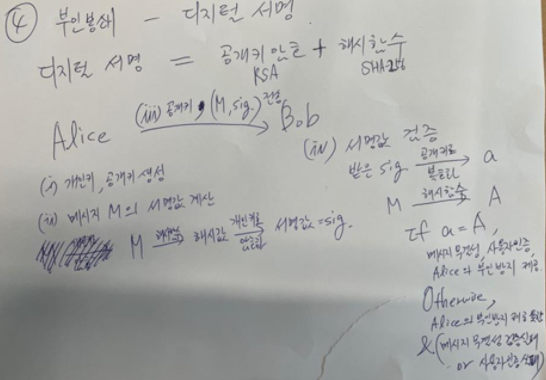 ④ 부인봉쇄 - 디지털 서명.
디지털 서명 = 공개키 암호 + 해시함수
RSA SHA256
Alice (iii) 공개키, (M, sig.) 전송 Bob
(i) 개인키, 공개키 생성
(ii) 메시지 M의 서명값 계산
M 해시함수 해시값 개인키로 암호화 서명값 = sig.
(iv) 서명값 검증
받은 sig 공개키로 복호화 a
M 해시함수 A
If a = A,
메시지 무결성, 사용자인증,
Alice의 부인방지 제공.
Otherwise,
Alice의 부인방지 제공 불가
& (메시지 무결성 검증실패
or 사용자인증 실패)